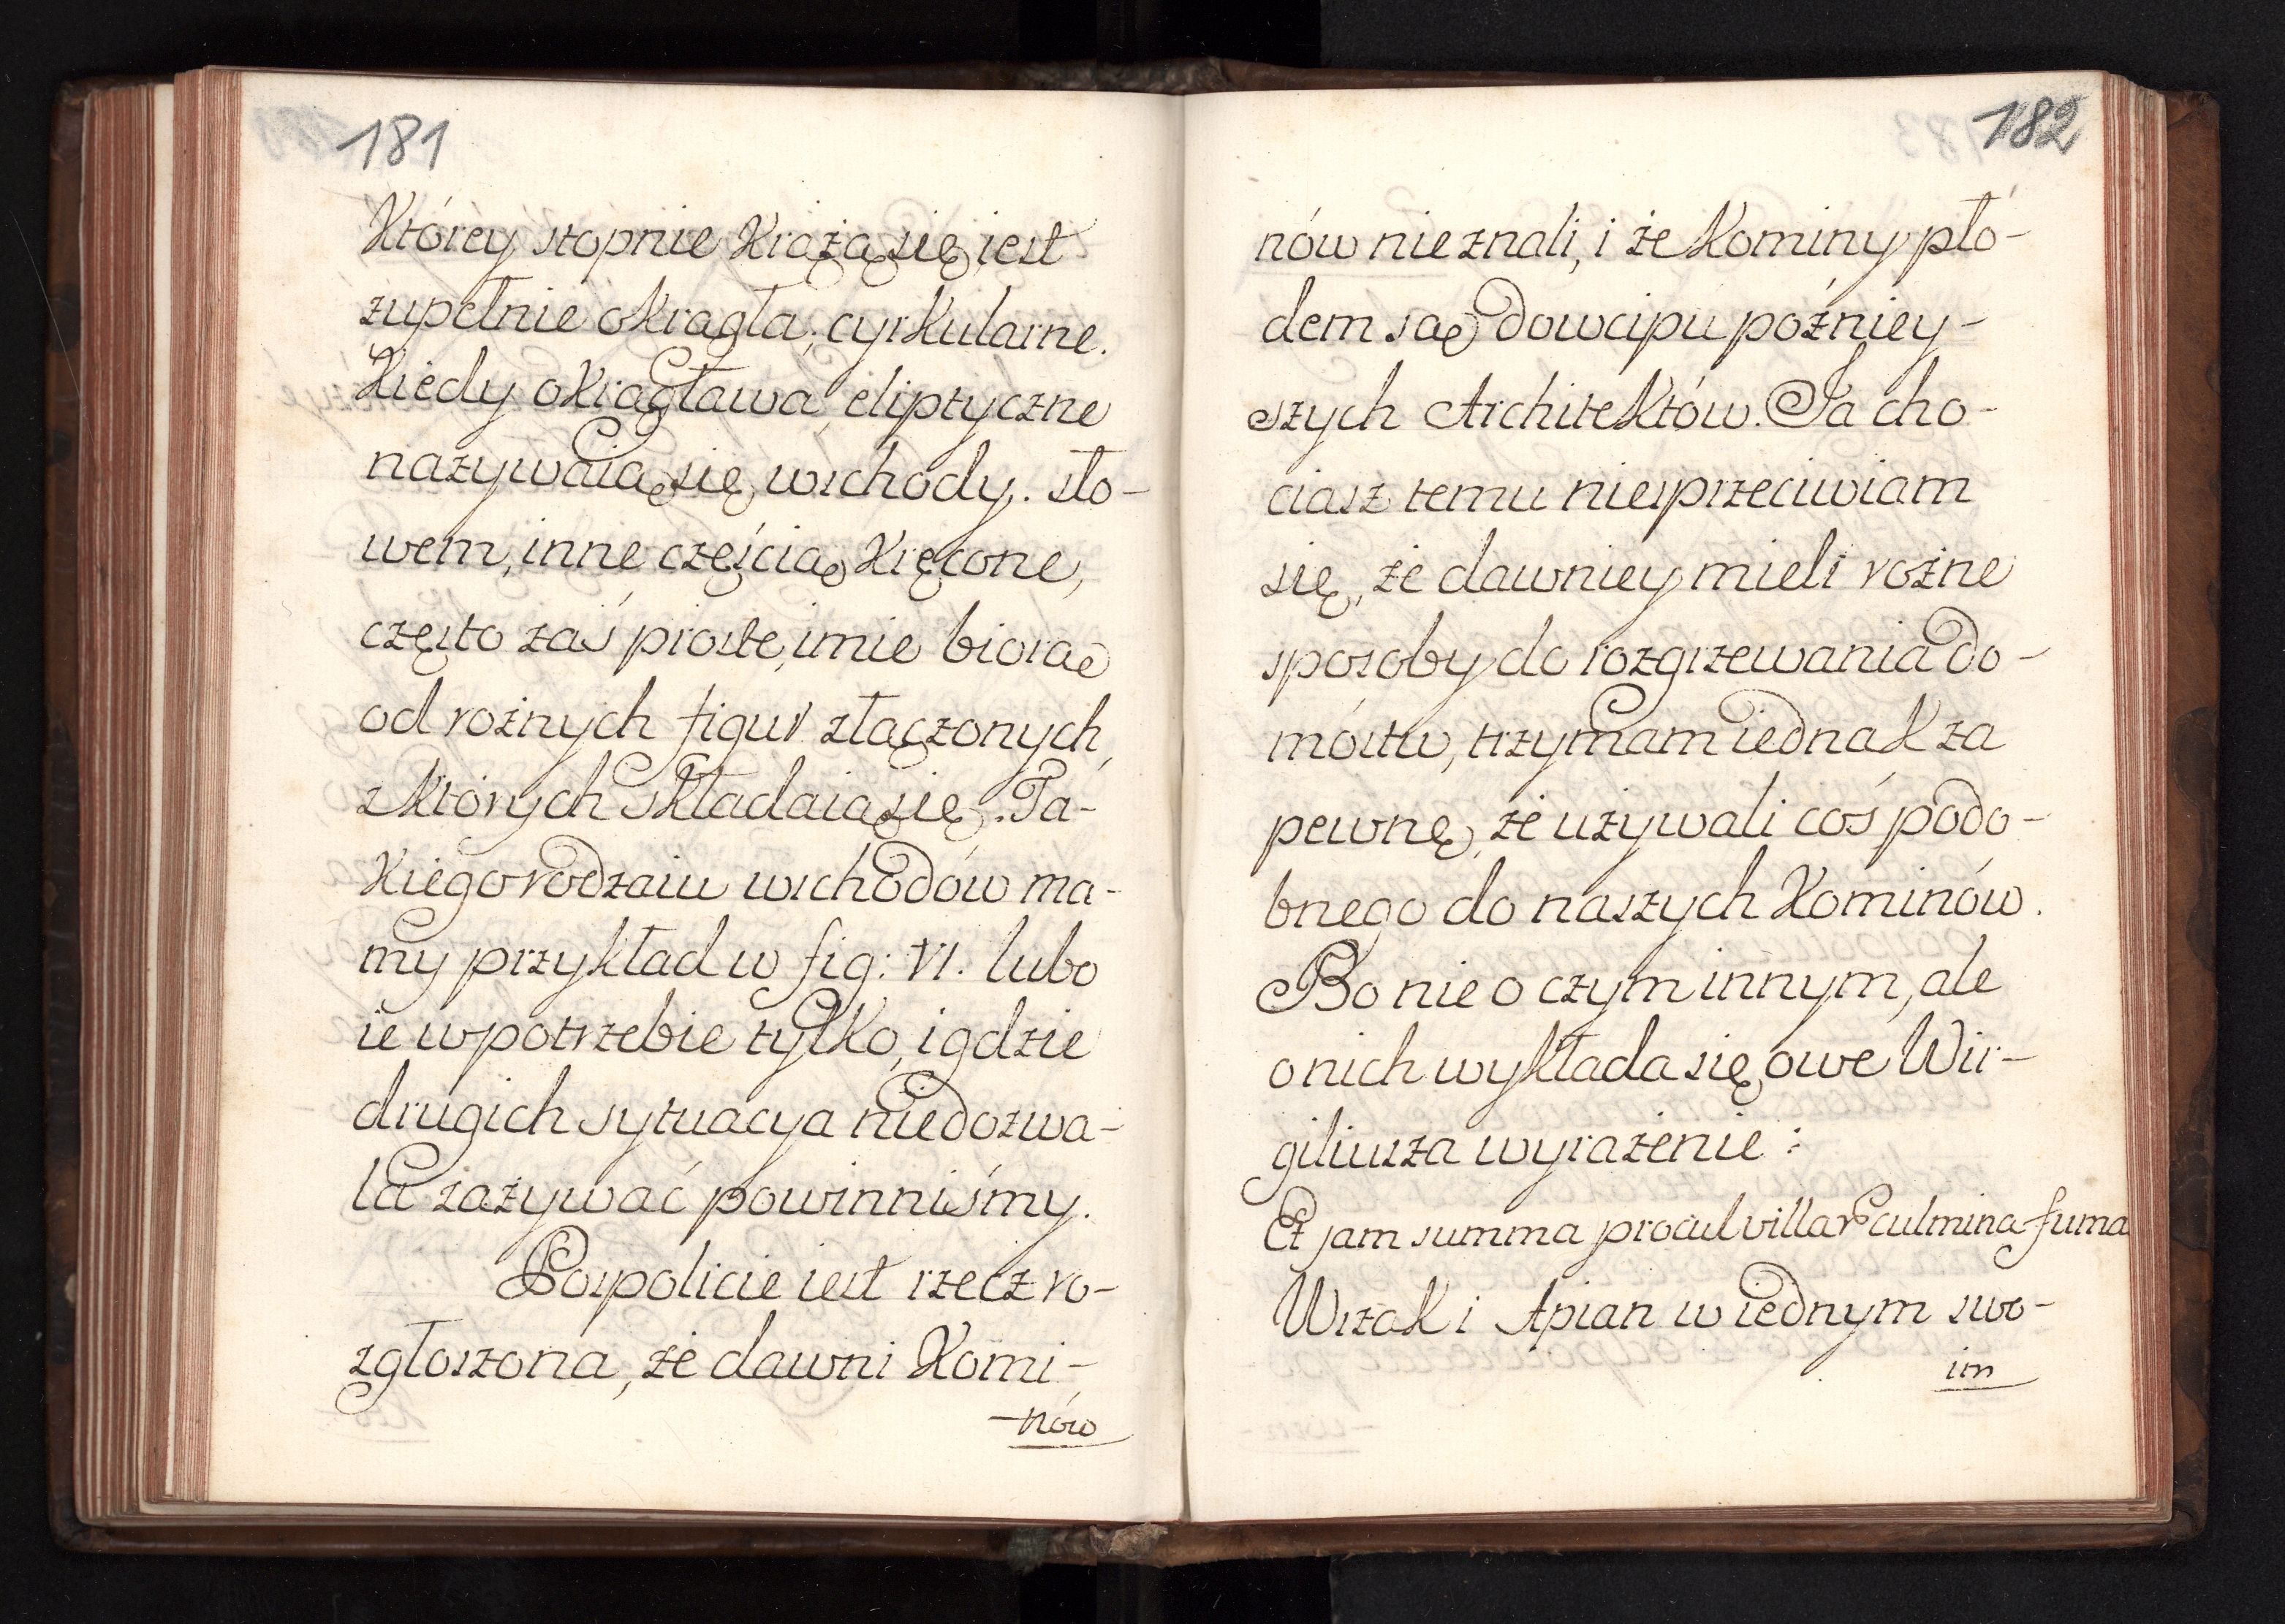 181
Którey stopnie krążą się, iest
zupełnie okrągła, cyrkularne.
Kiedy okrągława, eliptyczne
nazywaią się wschody. sło-
wem, inne częścią kręcone,
często zaś proste, imie biorą
od rożnych figur złączonych,
z których składaią się. Ta-
kiego rodzaiu wschodów ma-
my przykład w fig: VI. lubo
ie w potrzebie tylko, i gdzie
drugich sytuacya niedozwa-
la zażywać powinniśmy.
Pospolicie iest rzecz ro-
zgłoszona, że dawni Komi-
-nów
182
nów nie znali, i że Kominy pło-
dem są dowcipu poźniey-
szych Architektów. Ja cho-
ciasz temu niesprzeciwiam
się, że dawniey mieli rożne
sposoby do rozgrzewania do-
mostw, trzymam iednak za
pewnę, że używali coś podo-
bnego do naszych Kominów.
Bo nie o czym innym, ale
o nich wykłada się owe Wir-
giliusza wyrażenie:
Et jam summa procul villar culmina fuma
Wszak i Apian w iednym swo-
im